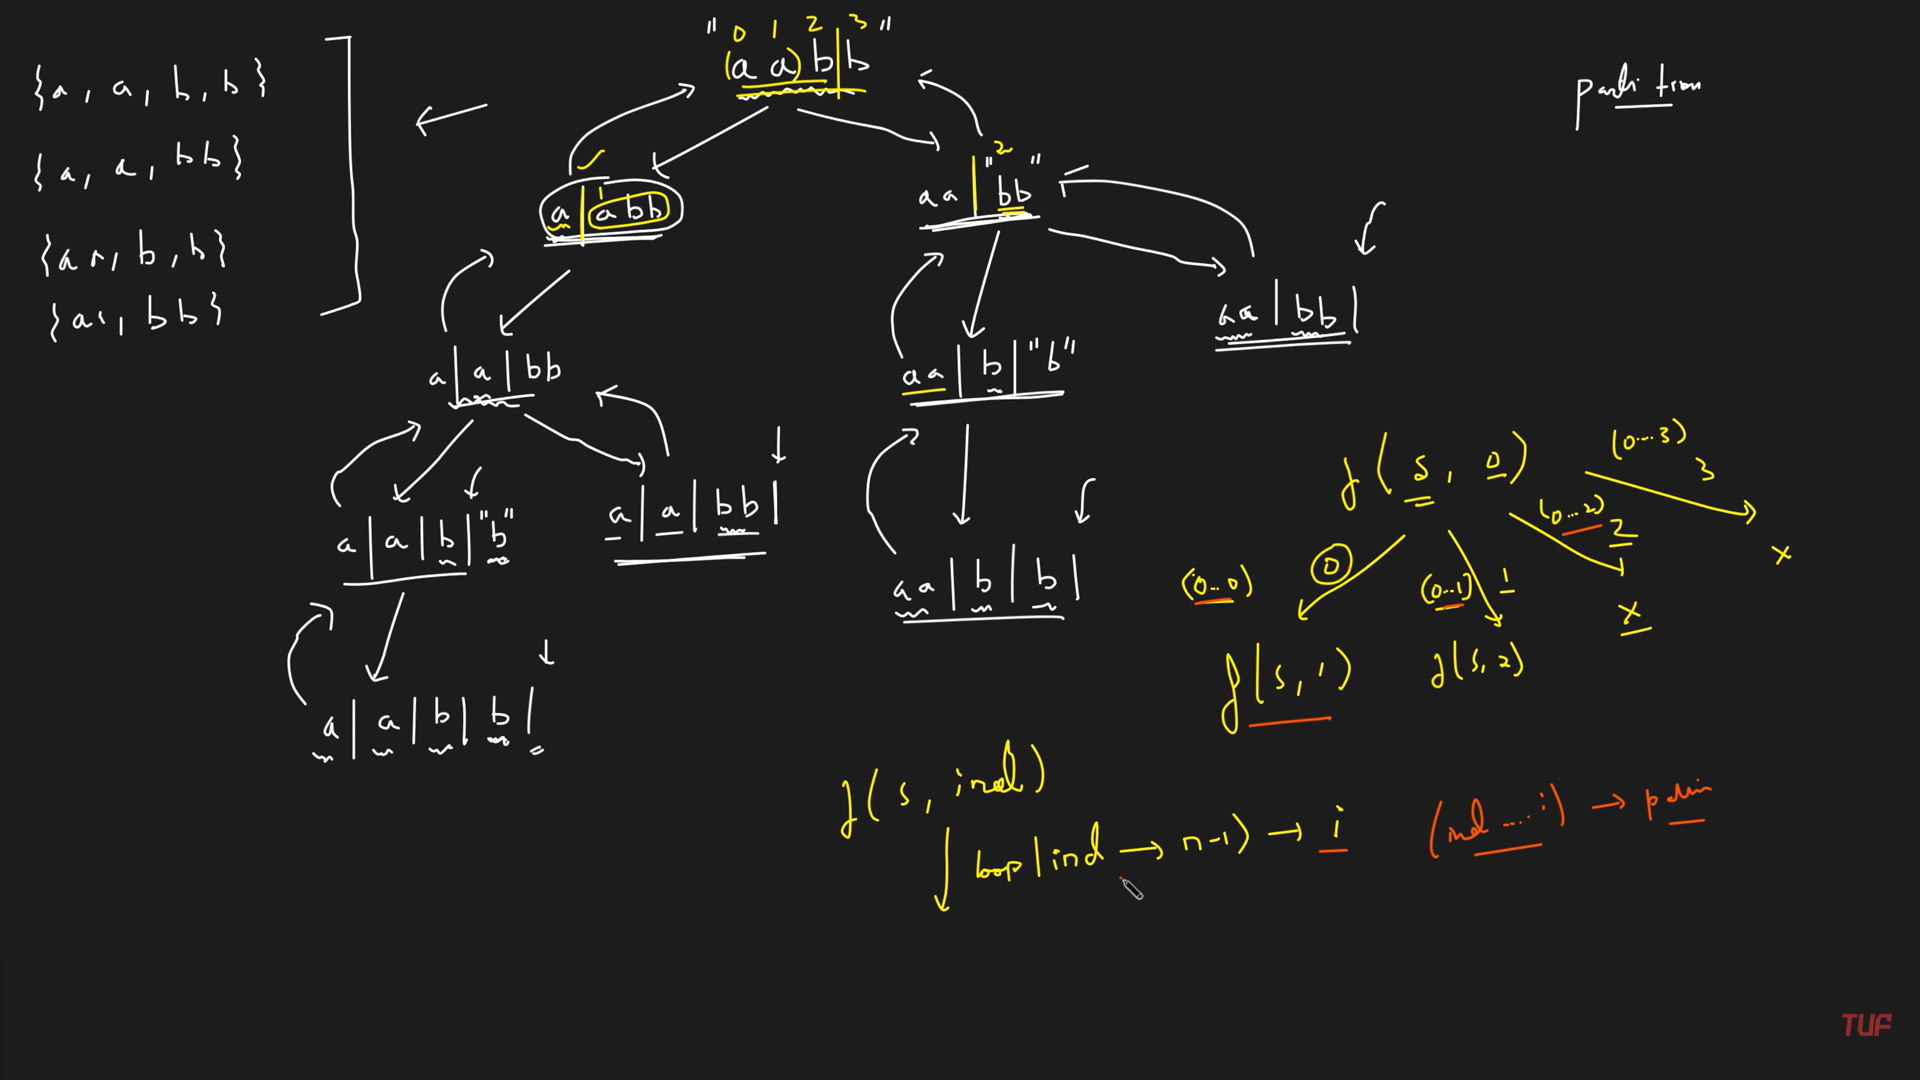 {a, a, b, b}
{a, a, bb}
{aa, b, b}
{aa, bb}
" 0 1 2 3 "
(a a) b | b
partition
a | a b b
1
2
aa | "bb"
aa | bb |
a | a | bb
aa | b | "b"
a | a | b | "b"
a | a | bb |
aa | b | b |
a | a | b | b |
f(s, 0)
(0...3)
3
(0...2)
2
x
x
(0..0)
0
(0..1) 1
f(s, 1)
f(s, 2)
f(s, ind)
loop(ind → n-1) → i
(ind ....i) → palin
TUF